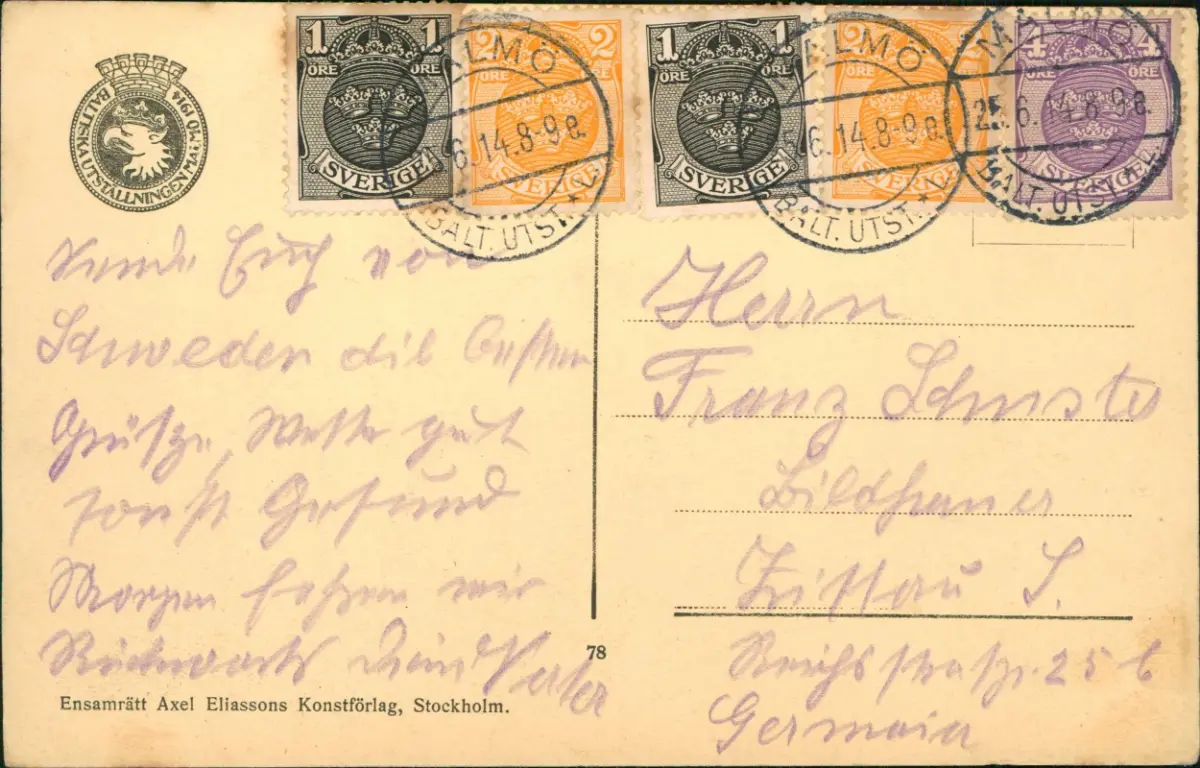 1 ÖRE 1 ÖRE SVERIGE
2 ÖRE 2
1 ÖRE 1 ÖRE SVERIGE
2 ÖRE
4 ÖRE 4 ÖRE SVERIGE
MALMÖ
6.14.8-9e.
BALT. UTST. * 2
MALMÖ
5.6.14.8-9e.
BALT. UTST. * 2
MALMÖ
25.6.14.8-9e.
BALT. UTST.
BALTISKA UTSTÄLLNINGEN MALMÖ 1914
Sende Euch von
Schweden die besten
Grüße, Wetter gut
sonst Gesund
Morgen fahren wir
Rückwärts Dein Vater
Herrn
Franz Schuster
Bildhauer
Zittau S.
Reichsstraße 25 b
Germania
78
Ensamrätt Axel Eliassons Konstförlag, Stockholm.